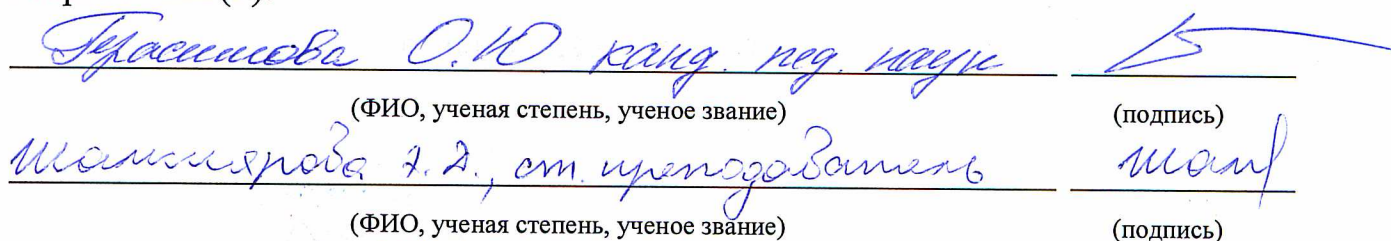 Герасимова О.Ю канд. пед. наук
(ФИО, ученая степень, ученое звание) (подпись)
ст. преподаватель Шам
(ФИО, ученая степень, ученое звание) (подпись)